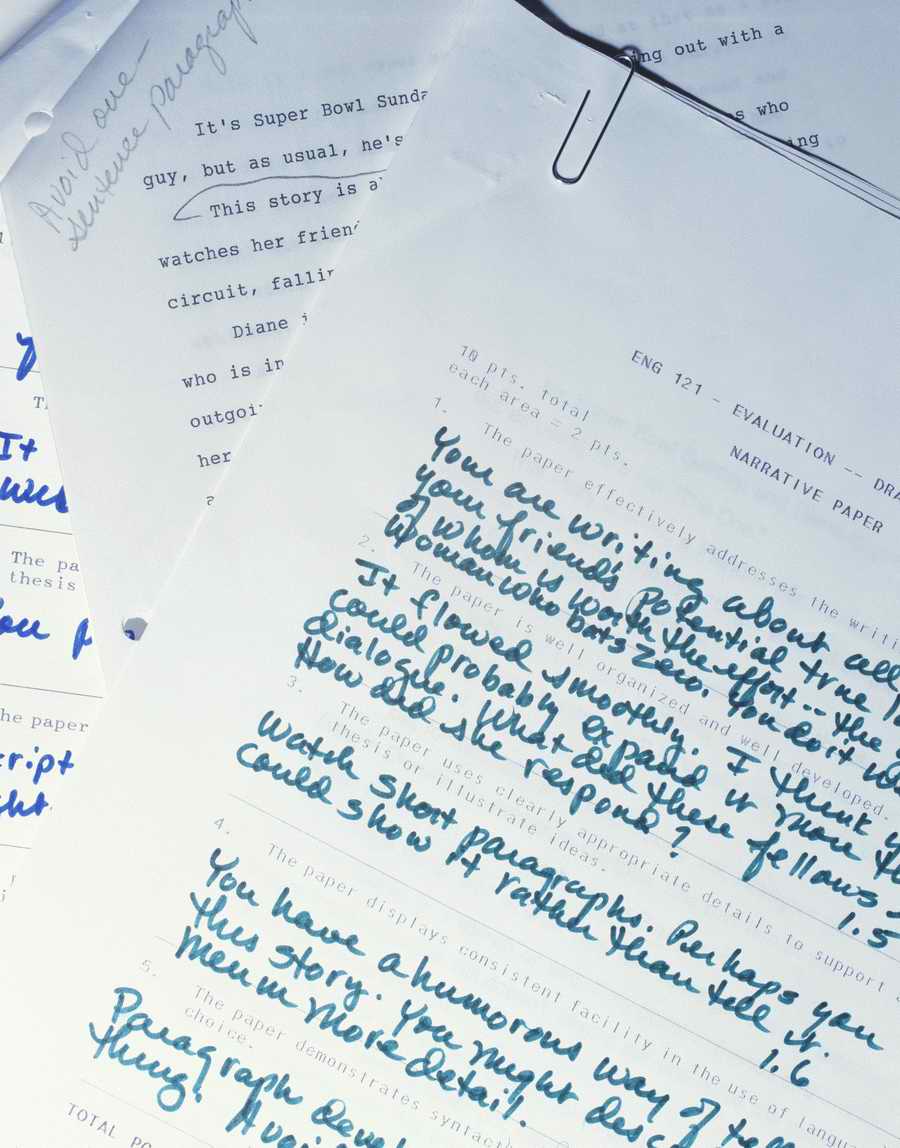 Avoid one-
sentence paragraph
It's Super Bowl Sunda
guy, but as usual, he's
This story is a
watches her frien
circuit, fallin
Diane i
who is in
outgoi
her
a
ing out with a
s who
ing
y
It
The pa
thesis
ou p
he paper
cript
ght.
ENG 121 - EVALUATION -- DRA
NARRATIVE PAPER
10 pts. total
each area = 2 pts.
1.
The paper effectively addresses the writi
You are writing about all
your friend's potential true
of whom is worth the effort -- the
woman who bats zero. You do it
2.
The paper is well organized and well developed.
It flowed smoothly. I think y
could probably expand it more th
dialogue. What did these fellows
How did she respond?
1.5
3.
The paper uses clearly appropriate details to support a
thesis or illustrate ideas.
Watch short paragraphs. Perhaps you
could show it rather than tell it.
1.6
4.
The paper displays consistent facility in the use of langu
You have a humorous way of te
this story. You might desc
men in more detail.
5.
The paper demonstrates syntact
choice.
Paragraph deve
thing! Avoi
TOTAL PO